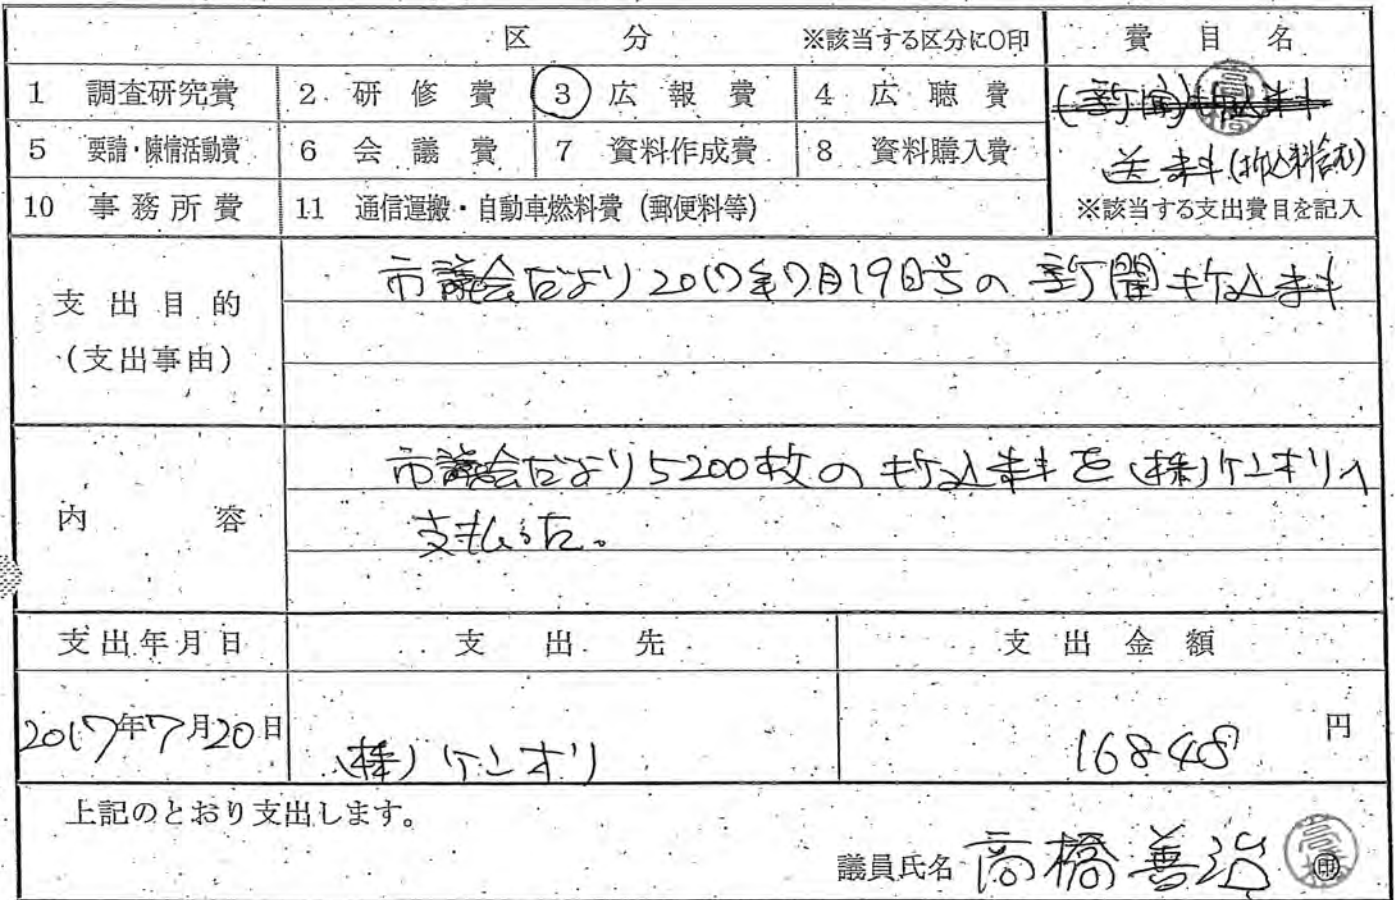 区 分 ※該当する区分に○印 費 目 名
1 調査研究費 2 研修費 3 広報費 4 広聴費 (新聞)折込料 高橋
5 要請・陳情活動費 6 会議費 7 資料作成費 8 資料購入費 送料(折込料含む)
10 事務所費 11 通信運搬・自動車燃料費(郵便料等) ※該当する支出費目を記入
支出目的 市議会だより2017年7月19日号の新聞折込料
(支出事由)
市議会だより5200枚の折込料を(株)ケンオリへ
内 容 支払った。
支出年月日 支 出 先 支 出 金 額
2017年7月20日 (株)ケンオリ 16848 円
上記のとおり支出します。
議員氏名 高橋善治 高橋 印